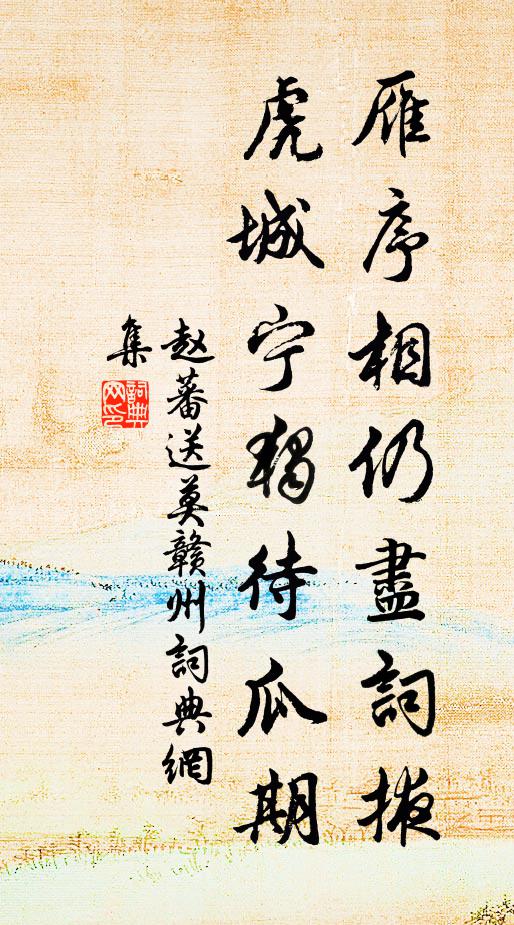 雁序相仍盡詞掖
虎城宁獨待瓜期
赵蕃送莫赣州詞典網
集
詞典網